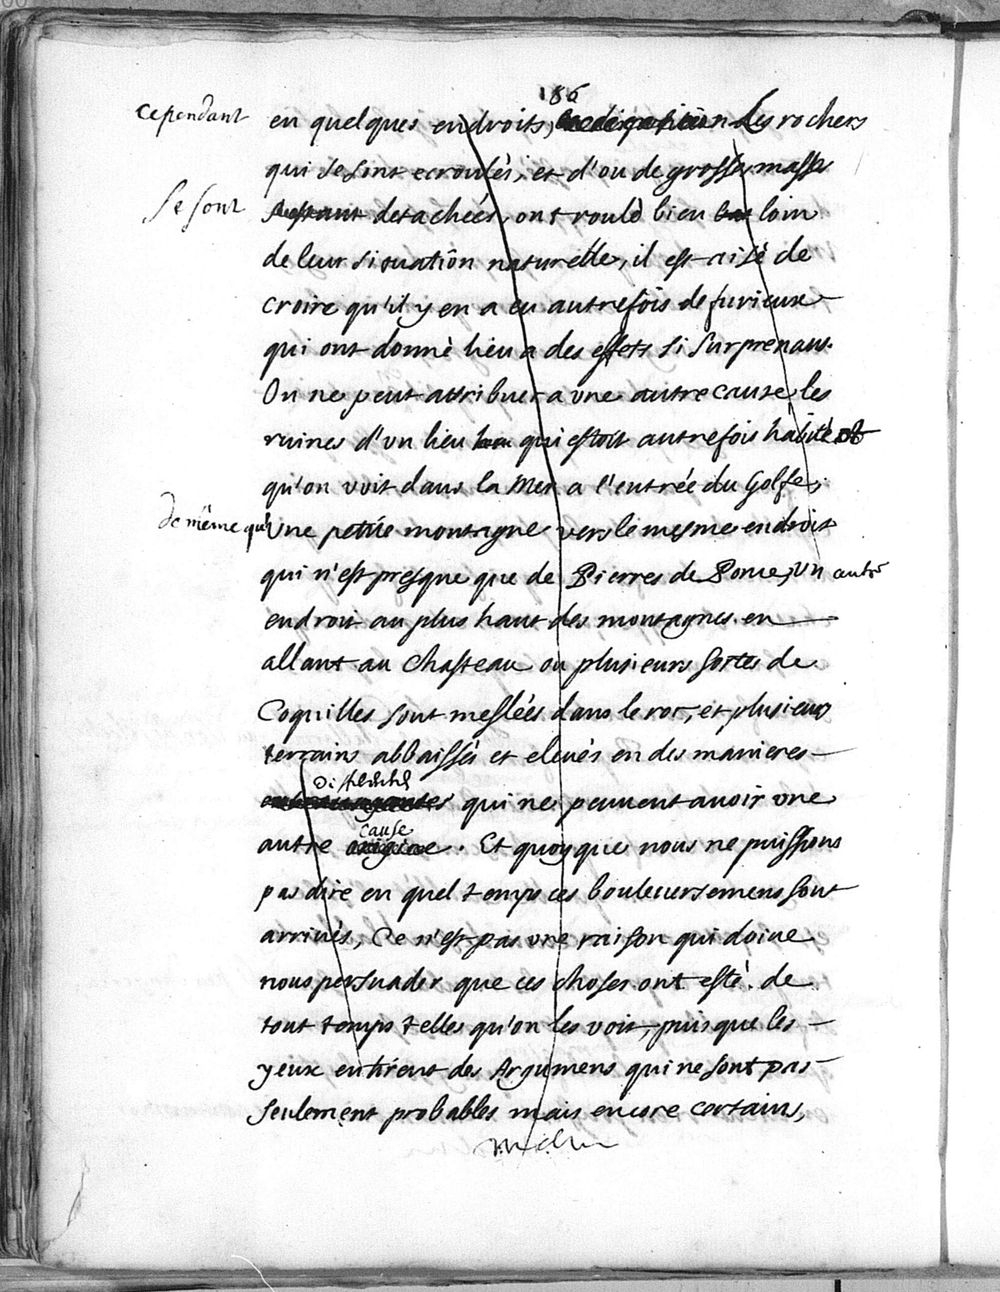 186
cependant en quelques endroits, des rochers
qui se sont ecroulés, et d'ou de grosses masses
se sont s'estant detachées, ont roulé bien loin
de leur situatiôn naturelle, il est aisé de
croire qu'il y en a eu autrefois de furieux
qui ont donné lieu a des effets si surprenans.
On ne peut attribuer a une autre cause les
ruines d'un lieu qui estoit autrefois habité et
qu'on voit dans la Mer a l'entrée du Golfe,
de même qu' Une petite montagne vers le mesme endroit
qui n'est presque que de Pierres de Ponce, Un autre
endroit au plus haut des montagnes en
allant au Chasteau ou plusieurs sortes de
Coquilles sont meslées dans le roc, et plusieurs
terrains abbaissés et elevés en des manieres
qui ne peuvent avoir une
cause
autre origine. Et quoy que nous ne puissions
pas dire en quel temps ces bouleversemens sont
arrivés, Ce n'est pas une raison qui doive
nous persuader que ces choses ont esté de
tout temps telles qu'on les voit, puis que les
yeux en tirent des Argumens qui ne sont pas
seulement probables mais encore certains,